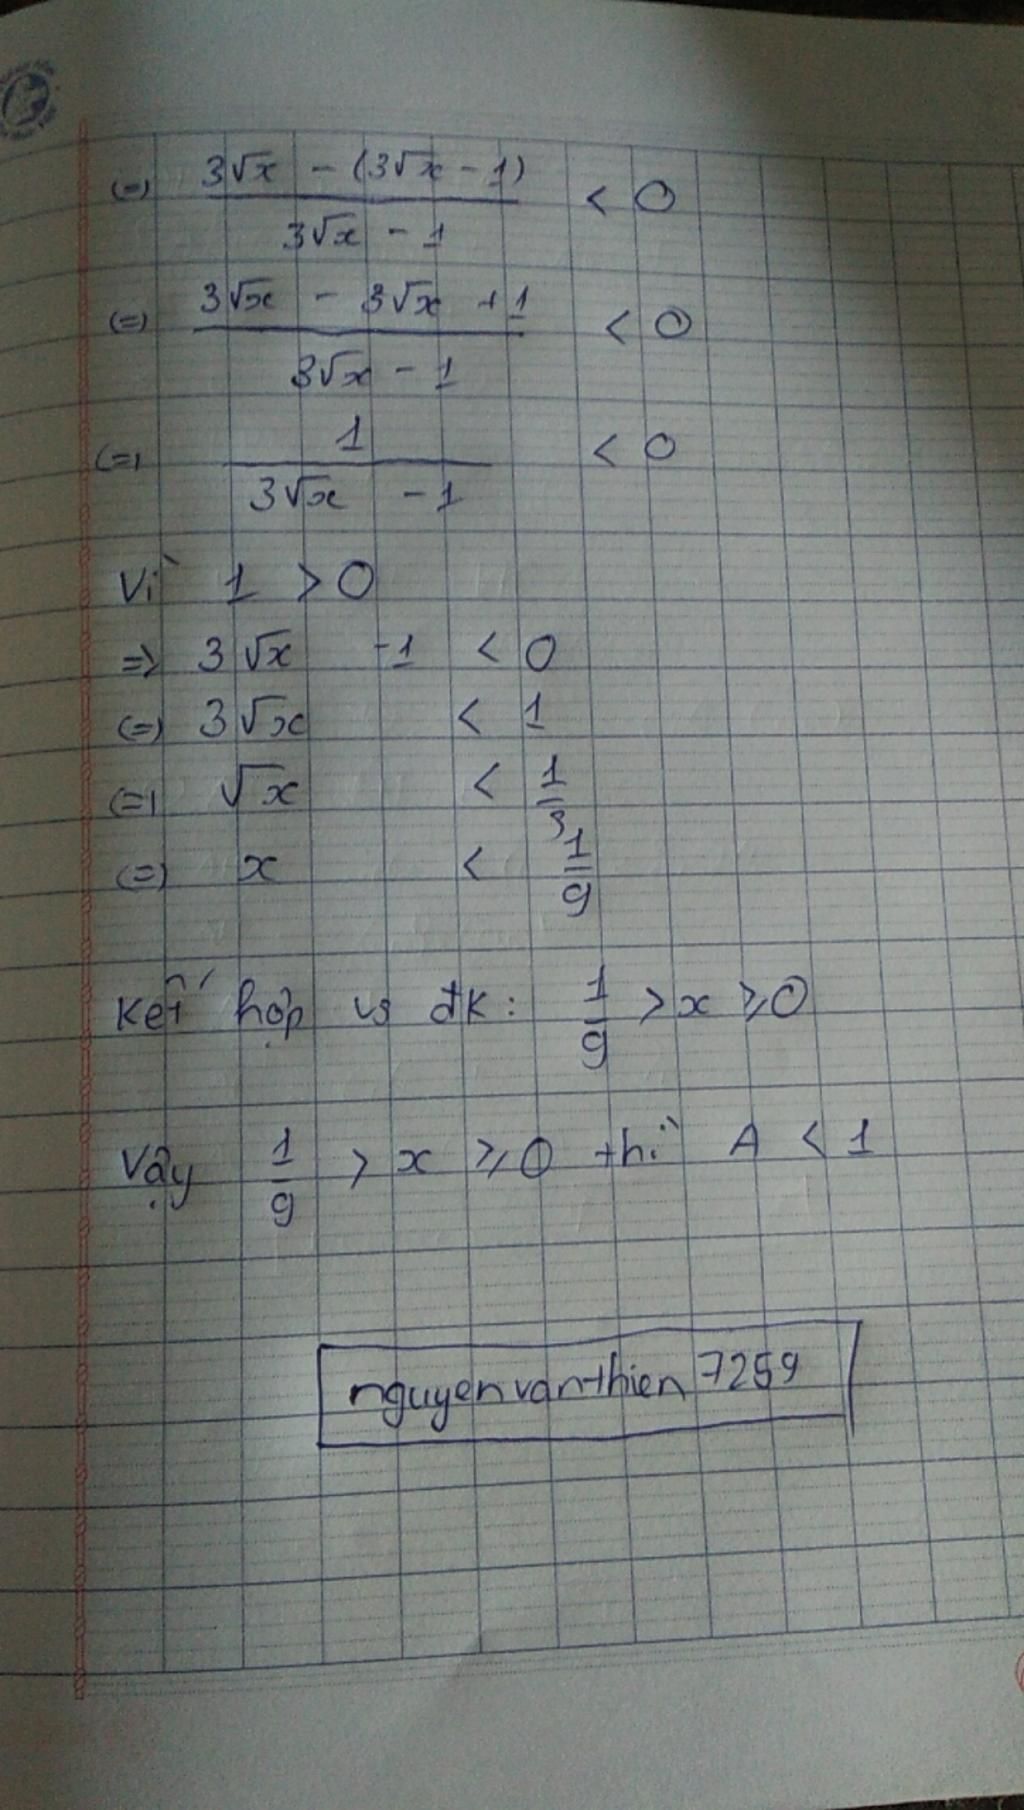 (=) 3√x - (3√x - 1) / 3√x - 1 < 0
(=) 3√x - 3√x + 1 / 3√x - 1 < 0
(=) 1 / 3√x - 1 < 0
Vì 1 > 0
=> 3√x - 1 < 0
(=) 3√x < 1
(=) √x < 1/3
(=) x < 1/9
Kết hợp vs đk: 1/9 > x ≥ 0
Vậy 1/9 > x ≥ 0 thì A < 1
nguyenvanthien 7259